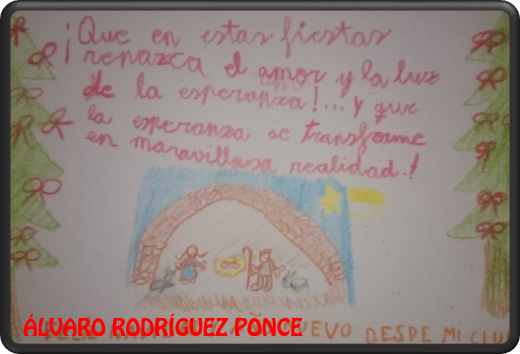 ¡Que en estas fiestas
renazca el amor y la luz
de la esperanza!... y que
la esperanza se transforme
en maravillosa realidad.!
ÁLVARO RODRÍGUEZ PONCE
NUEVO DESDE MI